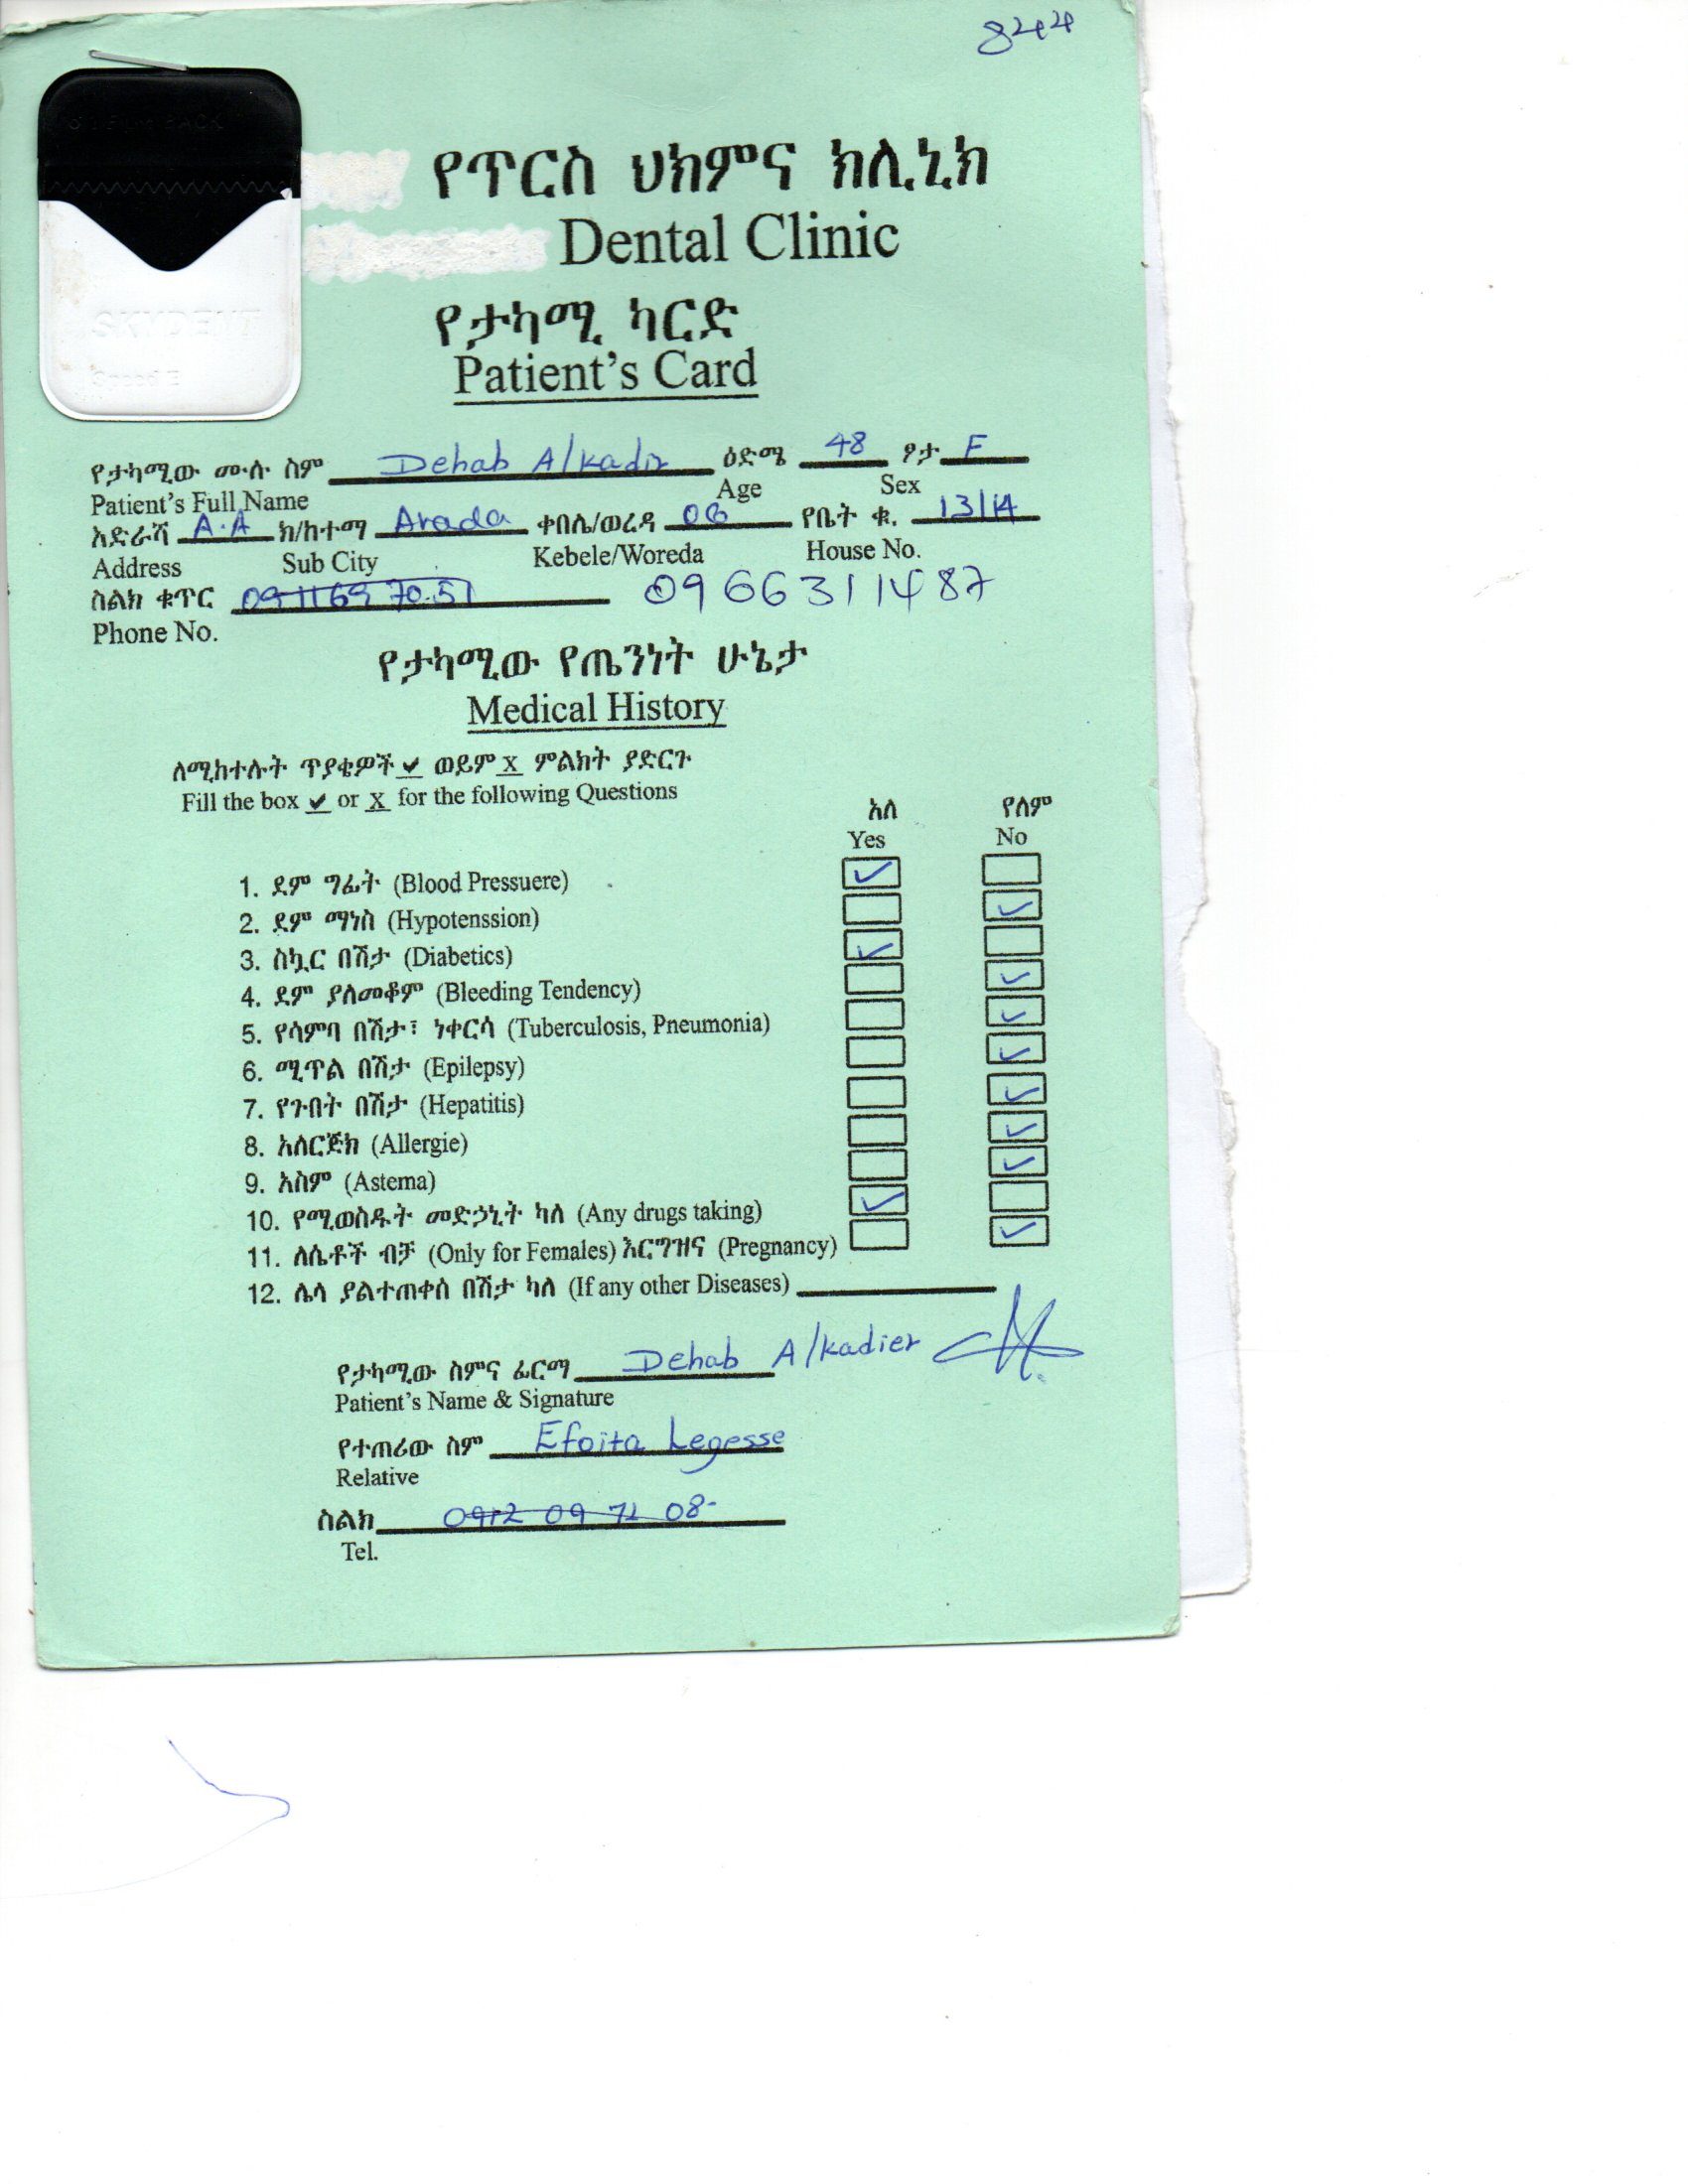 844
የጥርስ ህክምና ክሊኒክ
Dental Clinic
የታካሚ ካርድ
Patient's Card
SKYDENT
Speed E
የታካሚው ሙሉ ስም Dehab A/kadir ዕድሜ 48 ፆታ F
Patient's Full Name Age Sex
አድራሻ A.A ክ/ከተማ Arada ቀበሌ/ወረዳ የቤት ቁ. 13/14
Address Sub City Kebele/Woreda House No.
ስልክ ቁጥር 0911697051 0966311487
Phone No.
የታካሚው የጤንነት ሁኔታ
Medical History
ለሚከተሉት ጥያቄዎች ✔ ወይም X ምልክት ያድርጉ
Fill the box ✔ or X for the following Questions
አለ የለም
Yes No
1. ደም ግፊት (Blood Pressuere) ✓
2. ደም ማነስ (Hypotenssion) ✓
3. ስኳር በሽታ (Diabetics) ✓
4. ደም ያለመቆም (Bleeding Tendency) ✓
5. የሳምባ በሽታ፣ ነቀርሳ (Tuberculosis, Pneumonia) ✓
6. ሚጥል በሽታ (Epilepsy) ✓
7. የጉበት በሽታ (Hepatitis) ✓
8. አለርጅክ (Allergie) ✓
9. አስም (Astema) ✓
10. የሚወስዱት መድኃኒት ካለ (Any drugs taking) ✓
11. ለሴቶች ብቻ (Only for Females) እርግዝና (Pregnancy) ✓
12. ሌላ ያልተጠቀሰ በሽታ ካለ (If any other Diseases)
የታካሚው ስምና ፊርማ Dehab A/kadier
Patient's Name & Signature
የተጠሪው ስም Efoita Legesse
Relative
ስልክ 0912 09 71 08
Tel.